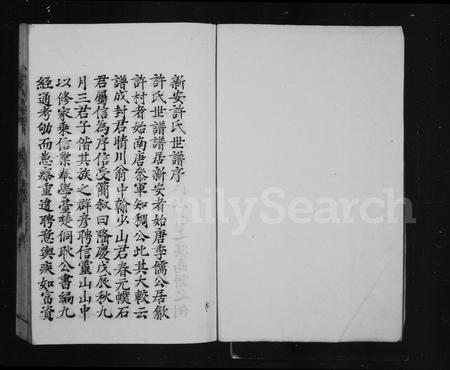 新安許氏世譜序
許氏世譜譜居新安者始唐李儒公居歙
許村者始南唐叅軍知稠公此其大較云
譜成封君晴川翁中翰少山君春元幞石
君屬信為序信受簡叙曰隆慶戊辰秋九
月三君子偕其族之群彦聘信靈山山中
以修家乗信業奉學臺楚侗耿公書編九
經通考劬而患瘵重違聘意輿疾如富資
FamilySearch